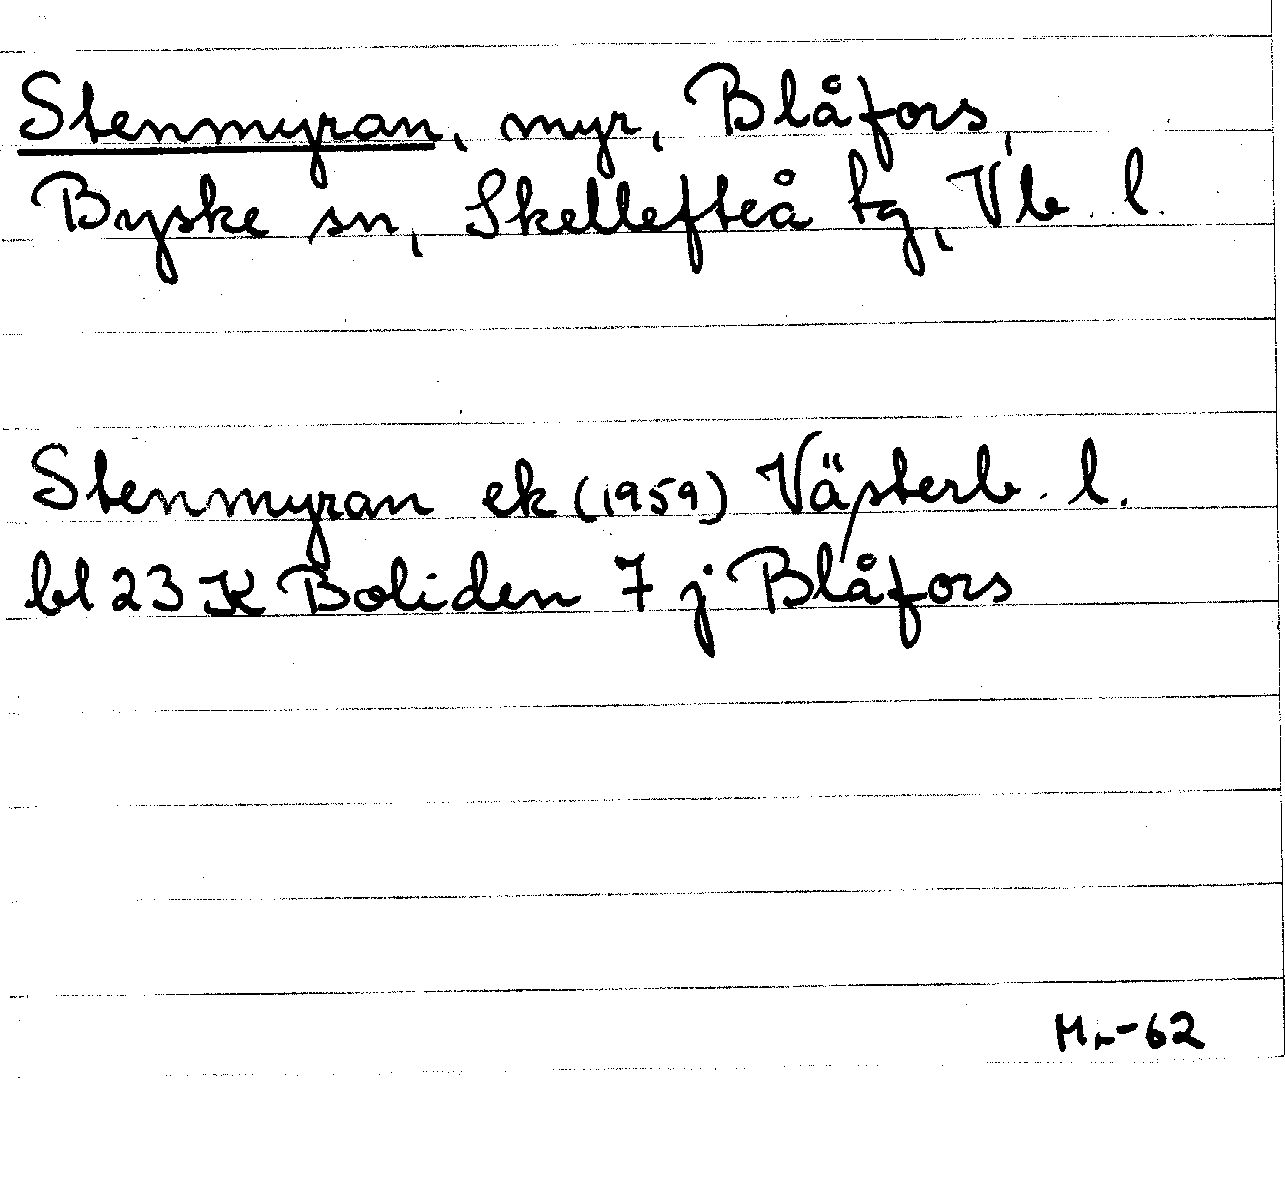 Stenmyran, myr, Blåfors,
Byske sn, Skellefteå tg, Vb. l.
Stenmyran ek (1959) Västerb. l.
bl 23 K Boliden 7 j Blåfors
Mr-62